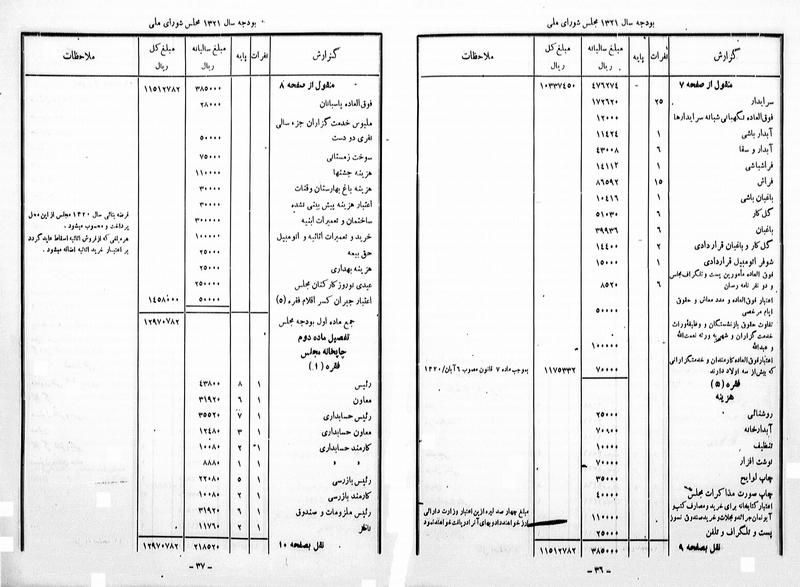 بودجه سال ۱۳۲۱ مجلس شورای ملی
گزارش نفرات پایه مبلغ سالیانه ریال مبلغ کل ریال ملاحظات
منقول از صفحه ۷ ۴۷۶۲۷۴ ۱۰۳۳۷۴۵۰
سرایدار ۲۵ ۱۷۲۶۲۰
فوق‌العاده نگهبانی شبانه سرایدارها ۱۲۰۰۰
آبدار باشی ۱ ۱۱۴۲۴
آبدار و سقا ۶ ۴۳۰۰۸
فراشباشی ۱ ۱۴۱۱۲
فراش ۱۵ ۸۶۵۹۲
باغبان باشی ۱ ۱۰۴۱۶
گل کار ۶ ۵۱۰۳۰
باغبان ۶ ۳۹۹۳۶
گل کار و باغبان قراردادی ۲ ۱۴۴۰۰
شوفر اتومبیل قراردادی ۱ ۱۵۰۰۰
فوق العاده مأمورین پست و تلگراف مجلس
و دو نفر نامه رسان ۶ ۸۵۲۰
اعتبار فوق‌العاده و مدد معاش و حقوق
ایام مرخصی ۵۰۰۰۰
تفاوت حقوق بازنشستگان و وظیفه وراث
خدمت گزاران و شهریه ورثه نعمت‌الله
و عبدالله ۱۰۰۰۰۰
اعتبار فوق‌العاده کارمندان و خدمتگزارانی
که بیش از سه اولاد دارند ۷۰۰۰۰ ۱۱۷۵۳۳۲ بموجب ماده ۷ قانون مصوب ۶ آبان/۱۳۲۰
فقره (۵)
هزینه
روشنائی ۲۵۰۰۰
آبدارخانه ۷۰۹۰۰
تنظیف ۱۰۰۰۰
نوشت افزار ۷۰۰۰۰
چاپ لوایح ۳۵۰۰۰
چاپ صورت مذاکرات مجلس ۴۰۰۰۰
اعتبار کتابخانه برای خرید و مصارف کتب و ۱۱۰۰۰۰ مبلغ چهار صد لیره از این اعتبار وزارت دارائی
پست و تلگراف و تلفن ۲۵۰۰۰
نقل بصفحه ۹ ۳۸۵۰۰۰ ۱۱۵۱۲۷۸۲
- ۳۶ -
بودجه سال ۱۳۲۱ مجلس شورای ملی
گزارش نفرات پایه مبلغ سالیانه ریال مبلغ کل ریال ملاحظات
منقول از صفحه ۸ ۳۸۵۰۰۰ ۱۱۵۱۲۷۸۲
فوق‌العاده پاسبانان ۲۸۰۰۰
ملبوس خدمت گزاران جزء سالی
نفری دو دست ۵۰۰۰۰
سوخت زمستانی ۷۵۰۰۰
هزینه جشنها ۱۱۰۰۰۰
هزینه باغ بهارستان و قنات ۳۰۰۰۰
اعتبار هزینه پیش بینی نشده ۳۰۰۰۰
ساختمان و تعمیرات ابنیه ۳۰۰۰۰۰ قرضه بنائی سال ۱۳۲۰ مجلس از این محل
پرداخت و محسوب میشود.
خرید و تعمیرات اثاثیه و اتومبیل ۱۰۰۰۰۰ هر مبلغی که از فروش اثاثیه اسقاط عاید گردد
بر اعتبار خرید اثاثیه اضافه میشود.
حق بیمه ۲۵۰۰۰
هزینه بهداری ۲۵۰۰۰
عیدی نوروز کارکنان مجلس ۲۵۰۰۰۰
اعتبار جبران کسر اقلام فقره (۵) ۵۰۰۰۰ ۱۴۵۸۰۰۰
جمع ماده اول بودجه مجلس ۱۲۹۷۰۷۸۲
تفصیل ماده دوم
چاپخانه مجلس
فقره (۱)
رئیس ۱ ۸ ۴۳۸۰۰
معاون ۱ ۶ ۳۱۹۲۰
رئیس حسابداری ۱ ۷ ۳۵۵۲۰
معاون حسابداری ۱ ۳ ۱۲۴۸۰
کارمند حسابداری ۱ ۲ ۱۰۰۸۰
» » ۱ ۱ ۸۸۸۰
رئیس بازرسی ۱ ۵ ۲۲۰۸۰
کارمند بازرسی ۱ ۲ ۱۰۰۸۰
رئیس ملزومات و صندوق ۱ ۶ ۳۱۹۲۰
ناظر ۱ ۲ ۱۱۷۶۰
نقل بصفحه ۱۰ ۲۱۸۵۲۰ ۱۲۹۷۰۷۸۲
- ۳۷ -